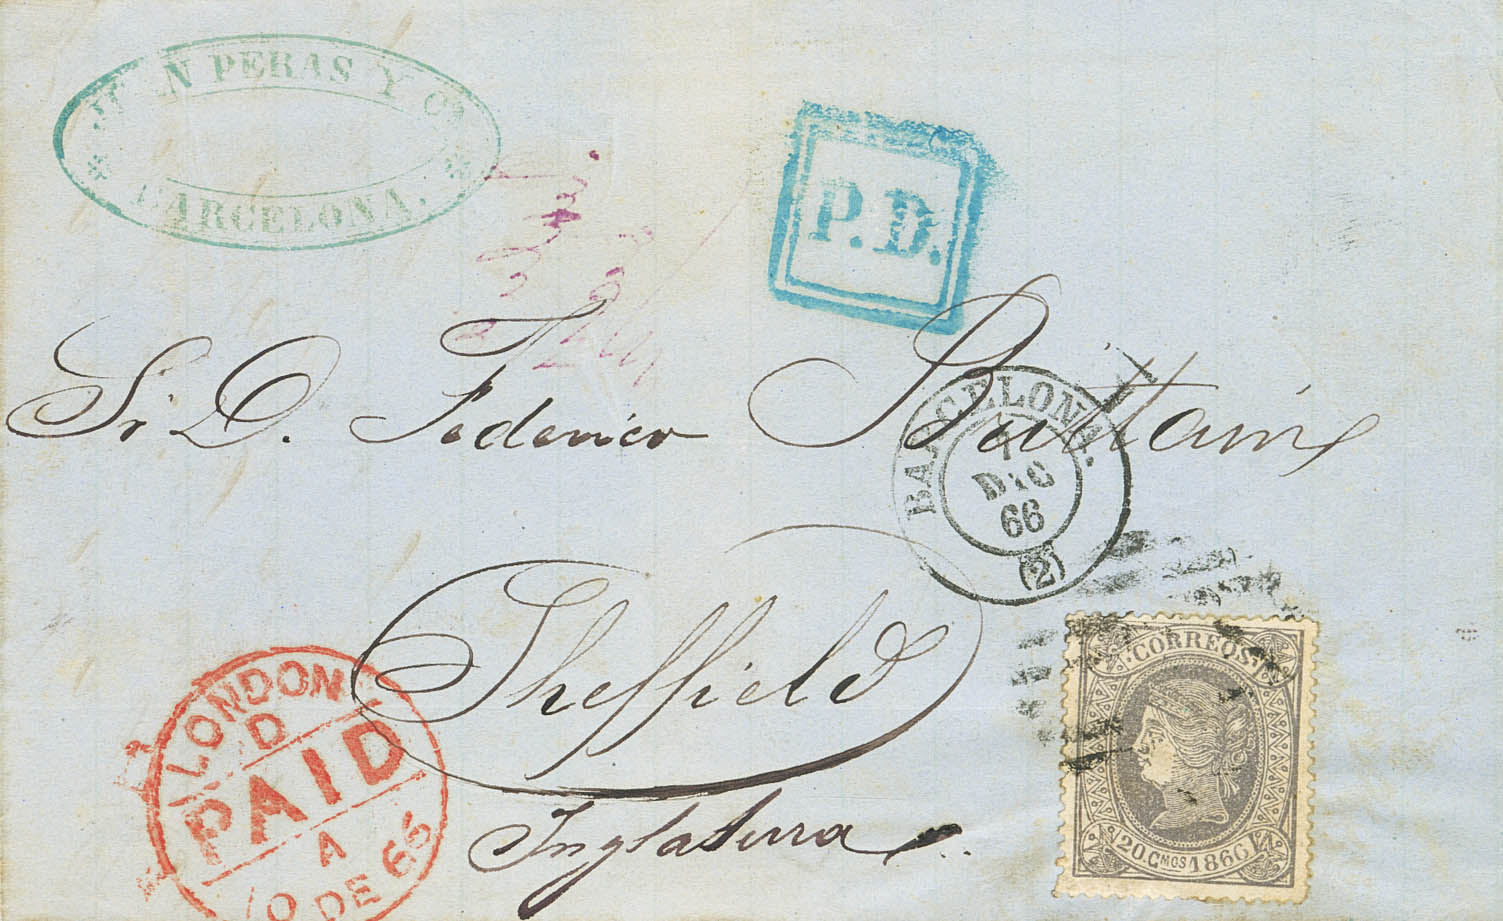 JUAN PERAS Y Cª
BARCELONA.
P.D.
Sr. D. Federico Brittain
BARCELONA.
7
DIC
66
(2)
Sheffield
Inglaterra
LONDON
D
PAID
A
10 DE 66
CORREOS
20 Cmos 1866